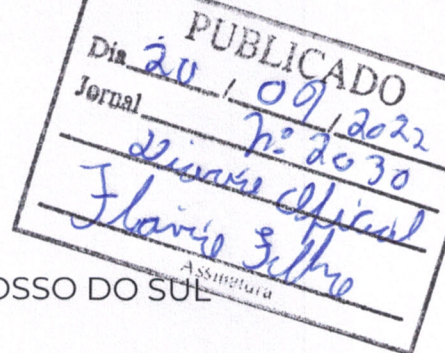 PUBLICADO
Dia 20 / 09 / 2022
Jornal nº 2030
Diário Oficial
Flavio Filho
Assinatura
OSSO DO SUL